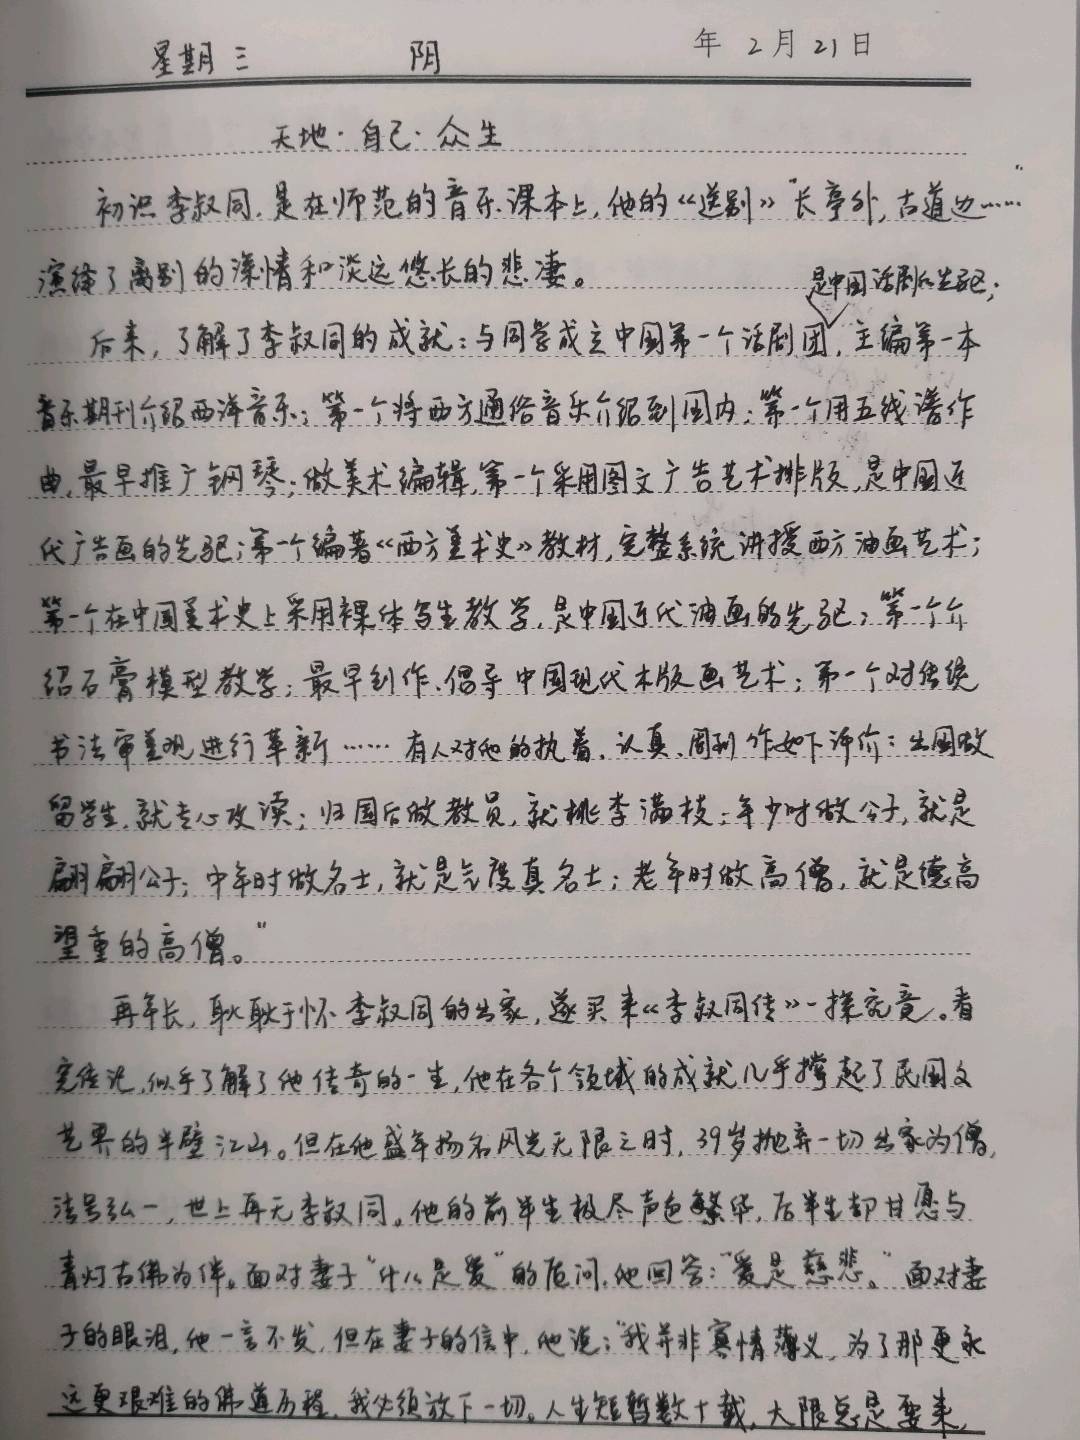 星期三 阴 年 2月21日
天地·自己·众生
初识李叔同,是在师范的音乐课本上,他的《送别》"长亭外,古道边……"
演绎了离别的深情和淡远悠长的悲凄。
是中国话剧的先驱;
后来,了解了李叔同的成就:与同学成立中国第一个话剧团,主编第一本
音乐期刊介绍西洋音乐;第一个将西方通俗音乐介绍到国内;第一个用五线谱作
曲,最早推广钢琴;做美术编辑,第一个采用图文广告艺术排版,是中国近
代广告画的先驱;第一个编著《西方美术史》教材,完整系统讲授西方油画艺术;
第一个在中国美术史上采用裸体写生教学,是中国近代油画的先驱;第一个介
绍石膏模型教学;最早创作、倡导中国现代木版画艺术;第一个对传统
书法审美观进行革新……有人对他的执着、认真、周到作如下评价:出国做
留学生,就专心攻读;归国后做教员,就桃李满枝;年少时做公子,就是
翩翩公子;中年时做名士,就是气度真名士;老年时做高僧,就是德高
望重的高僧。"
再年长,耿耿于怀李叔同的出家,遂买来《李叔同传》一探究竟。看
完传记,似乎了解了他传奇的一生,他在各个领域的成就几乎撑起了民国文
艺界的半壁江山。但在他盛年扬名风光无限之时,39岁抛弃一切出家为僧,
法号弘一,世上再无李叔同。他的前半生极尽声色繁华,后半生却甘愿与
青灯古佛为伴。面对妻子"什么是爱"的质问,他回答:"爱是慈悲。"面对妻
子的眼泪,他一言不发,但在妻子的信中,他说:"我并非寡情薄义,为了那更永
远更艰难的佛道历程,我必须放下一切。人生短暂数十载,大限总是要来,